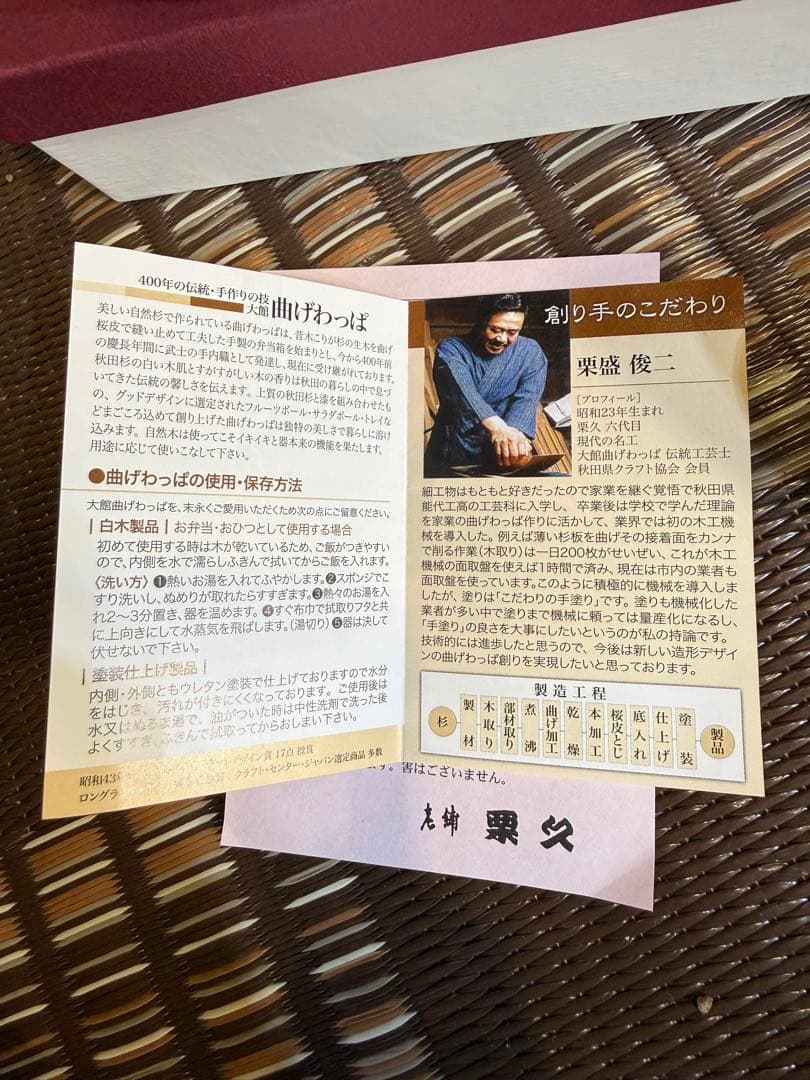 400年の伝統・手作りの技
大館 曲げわっぱ
美しい自然杉で作られている曲げわっぱは、昔木こりが杉の生木を曲げ
桜皮で縫い止めて工夫した手製の弁当箱を始まりとし、今から400年前
の慶長年間に武士の手内職として発達し、現在に受け継がれております。
秋田杉の白い木肌とすがすがしい木の香りは秋田の暮らしの中で息づ
いてきた伝統の馨しさを伝えます。上質の秋田杉と漆を組み合わせたも
の、グッドデザインに選定されたフルーツボール・サラダボール・トレイな
どまごころ込めて創り上げた曲げわっぱは独特の美しさで暮らしに溶け
込みます。自然木は使ってこそイキイキと器本来の機能を果たします。
用途に応じて使いこなして下さい。
●曲げわっぱの使用・保存方法
大館曲げわっぱを、末永くご愛用いただくため次の点にご留意ください。
|白木製品| お弁当・おひつとして使用する場合
初めて使用する時は木が乾いているため、ご飯がつきやすい
ので、内側を水で濡らしふきんで拭いてからご飯を入れます。
〈洗い方〉❶熱いお湯を入れてふやかします。❷スポンジでこ
すり洗いし、ぬめりが取れたらすすぎます。❸熱々のお湯を
入れ2〜3分置き、器を温めます。❹すぐ布巾で拭取りフタと共
に上向きにして水蒸気を飛ばします。(湯切り)❺器は決して
伏せないで下さい。
|塗装仕上げ製品|
内側・外側ともウレタン塗装で仕上げておりますので水分
をはじき、汚れが付きにくくなっております。ご使用後は
水又はぬるま湯で、油がついた時は中性洗剤で洗った後
よくすすぎ、ふきんで拭取ってからおしまい下さい。
昭和43年 デザイン賞 17点 受賞
ロング クラフト・センター・ジャパン選定商品 多数
創り手のこだわり
栗盛 俊二
[プロフィール]
昭和23年生まれ
栗久 六代目
現代の名工
大館曲げわっぱ 伝統工芸士
秋田県クラフト協会 会員
細工物はもともと好きだったので家業を継ぐ覚悟で秋田県
能代工高の工芸科に入学し、卒業後は学校で学んだ理論
を家業の曲げわっぱ作りに活かして、業界では初の木工機
械を導入した。例えば薄い杉板を曲げその接着面をカンナ
で削る作業(木取り)は一日200枚がせいぜい、これが木工
機械の面取盤を使えば1時間で済み、現在は市内の業者も
面取盤を使っています。このように積極的に機械を導入しま
したが、塗りは「こだわりの手塗り」です。塗りも機械化した
業者が多い中で塗りまで機械に頼っては量産化になるし、
「手塗り」の良さを大事にしたいというのが私の持論です。
技術的には進歩したと思うので、今後は新しい造形デザイ
ンの曲げわっぱ創りを実現したいと思っております。
製造工程
杉 製材 木取り 部材取り 煮沸 曲げ加工 乾燥 本加工 桜皮とじ 底入れ 仕上げ 塗装 製品
ます。害はございません。
老舗 栗久